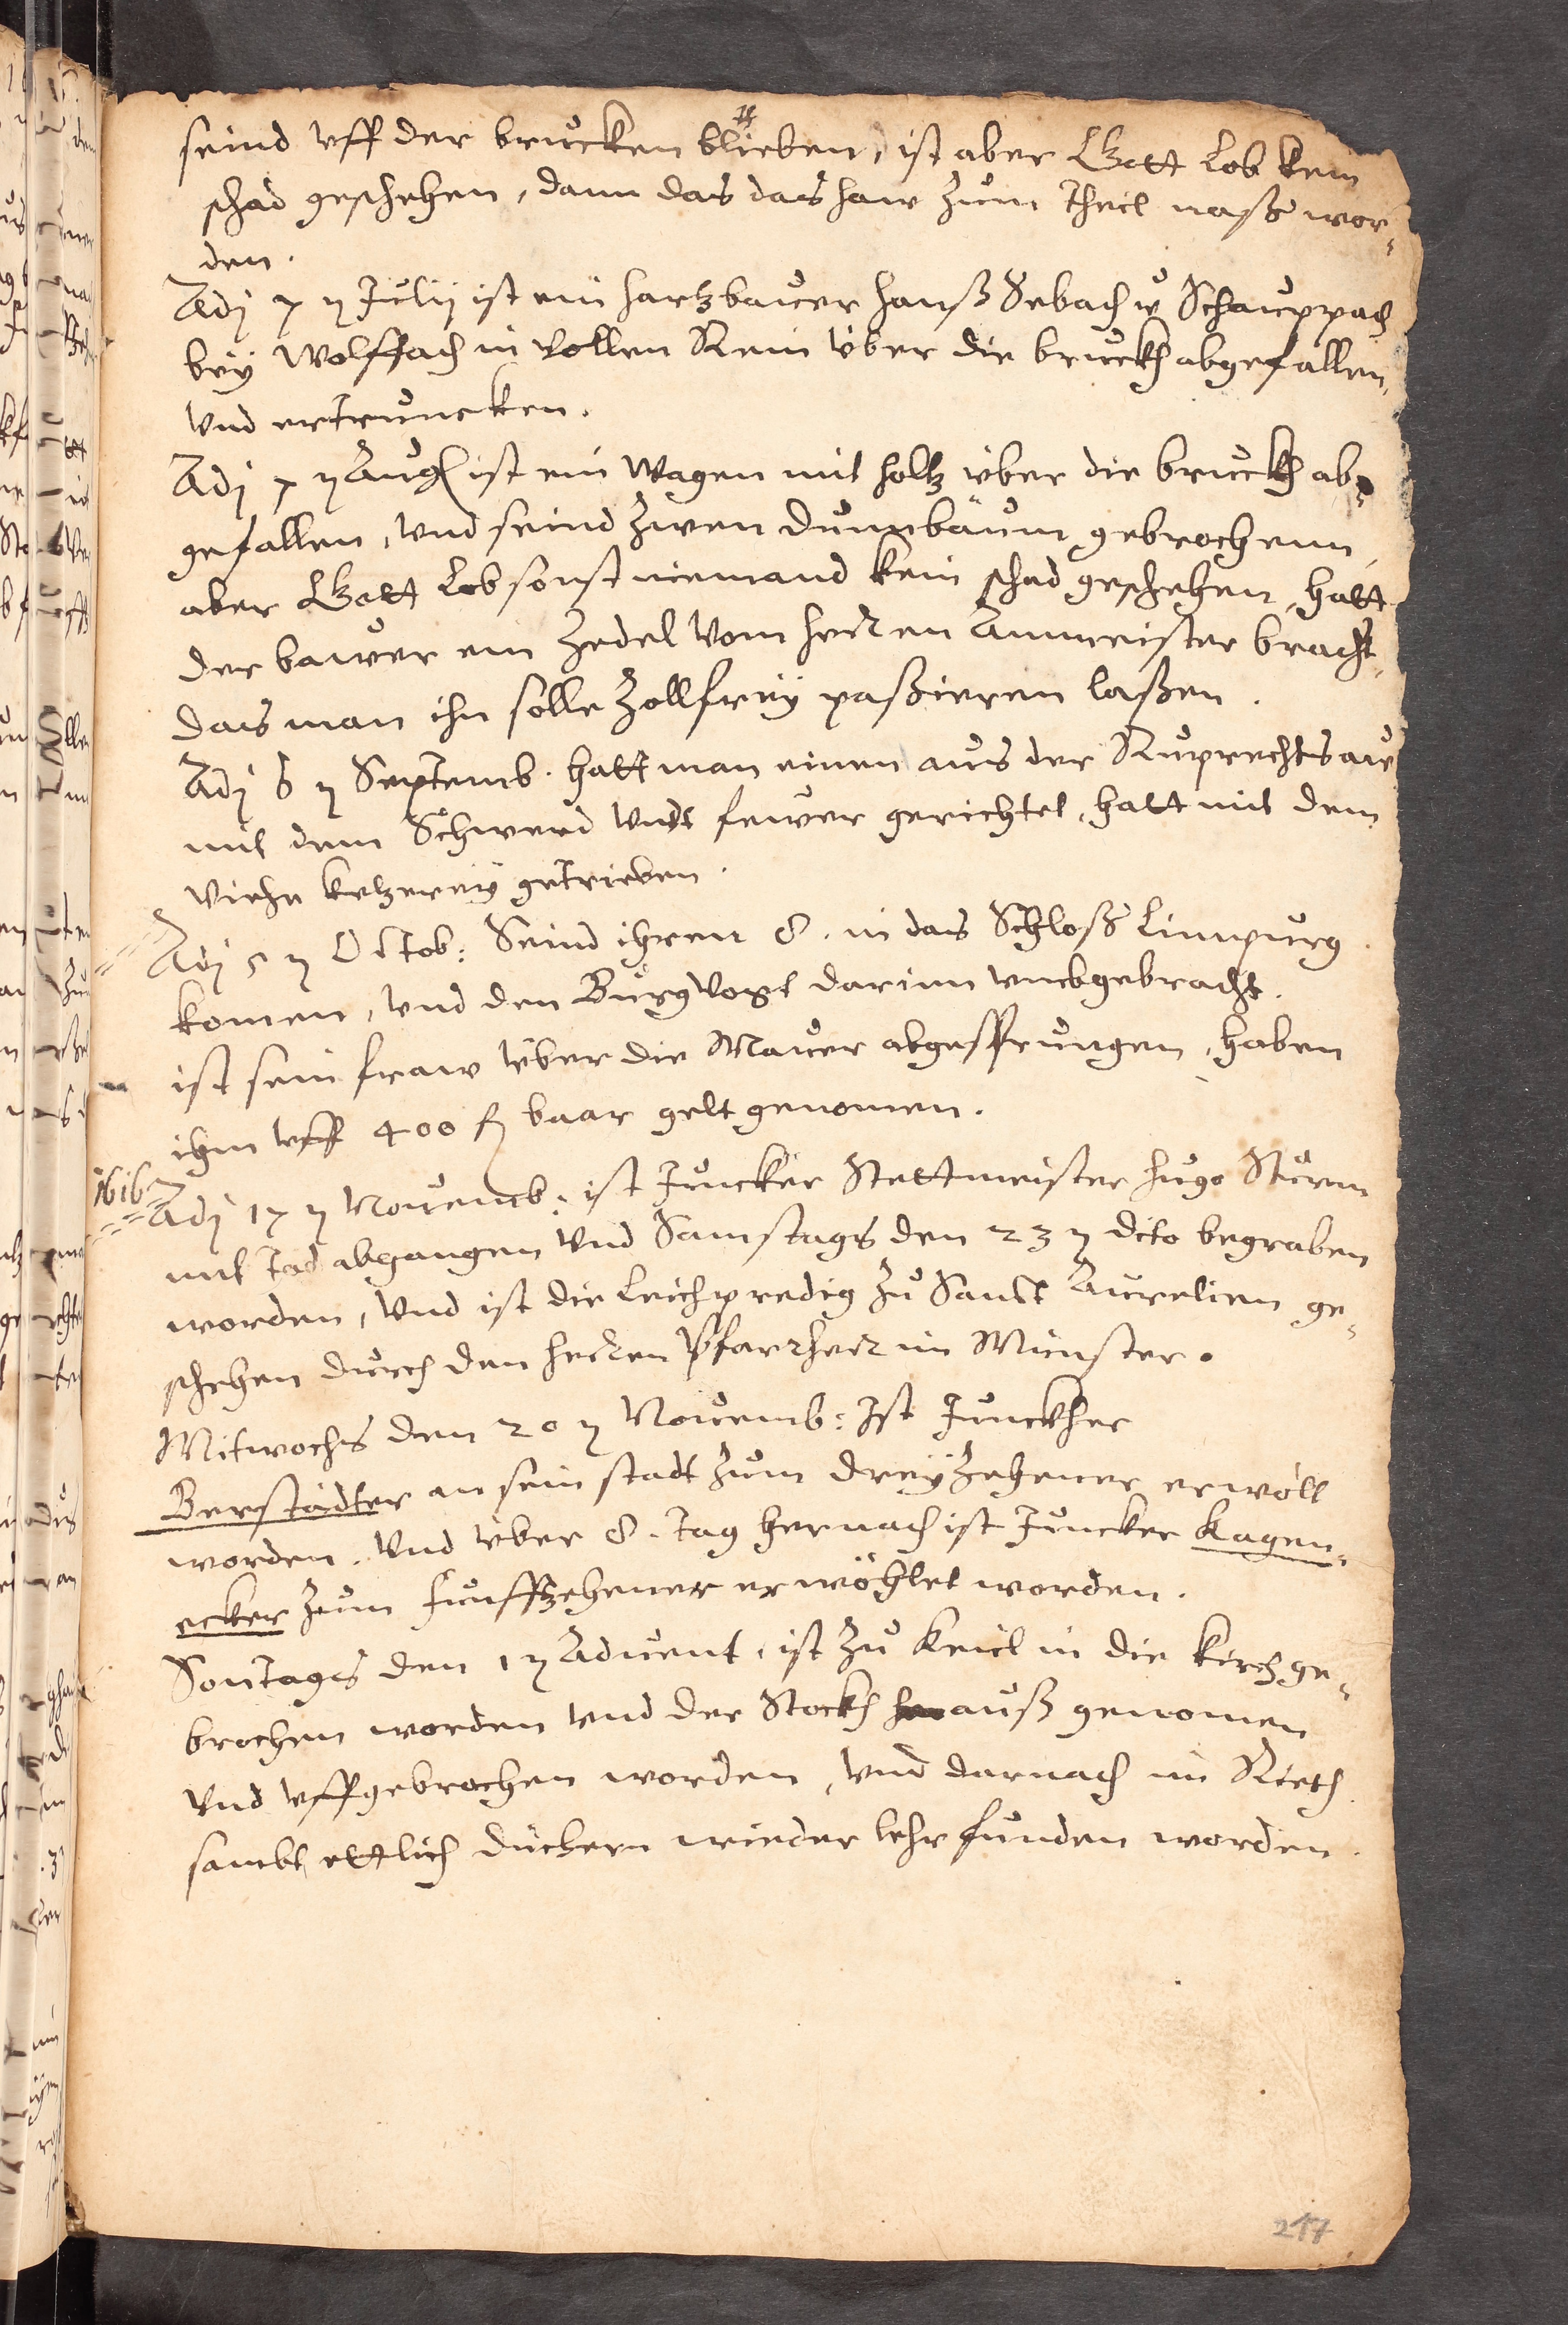 seind vff der brucken blieben, ist aber Gott Lob kein
schad geschehen, dann das das haw zum theil naß wor¬
den.
Adj 7 n Julij ist ein hartzbawer hanß Sebach v Schauppach
bey Wolffach in vollen Rein über die bruckh abgefallen,
vnd ertruncken.
Adj 7 n Aug ist ein Wagen mit holtz über die bruckh ab¬
gefallen, vnd seind zwen dunnbäum gebrochenn,
aber Gott Lob sonst niemand kein schad geschehen, hatt
der bawer ein Zedel vom herren Ammeister bracht,
das man ihn solle Zollfrey paßieren laßen.
Adj 6 n Septemb. hatt man einen aus der Ruprechtsaw
mit dem Schwerd vndt fewer gerichtet, hatt mit dem
Viehe ketzerey getrieben.
Adj 5 n Octob: Seind ihren 8. in das Schloß Limpurg
komen, vnd den Burgvogt darinn vmbgebracht.
ist sein fraw über die Mauer abgesprungen, haben
ihm vff 400 fl baar gelt genomen.
1616
Adj 17 n Novemb: ist Juncker Stettmeister hugo Sturm
mit tod abgangen vnd Samstags den 23 n dito begraben
worden, vnd ist die Leichpredig zu Sanct Aurelien ge¬
schehen durch den herren Pfarrherr im Münster.
Mitwochs den 20 n Novemb: Ist Junckher
Berstädter an sein stadt zum dreyzehener erwölt
worden. Vnd über 8. tag hernach ist Juncker Kagen¬
ecker zum funffzehener erwöhlet worden.
Sontags den 1 n Advent, ist zu Keiil in die kirch ge¬
brochen worden vnd der Stockh herauß genomen
vnd vffgebrochen worden, vnd darnach im Rieth
sambt ettlich düchern wieder lehr funden worden.
217